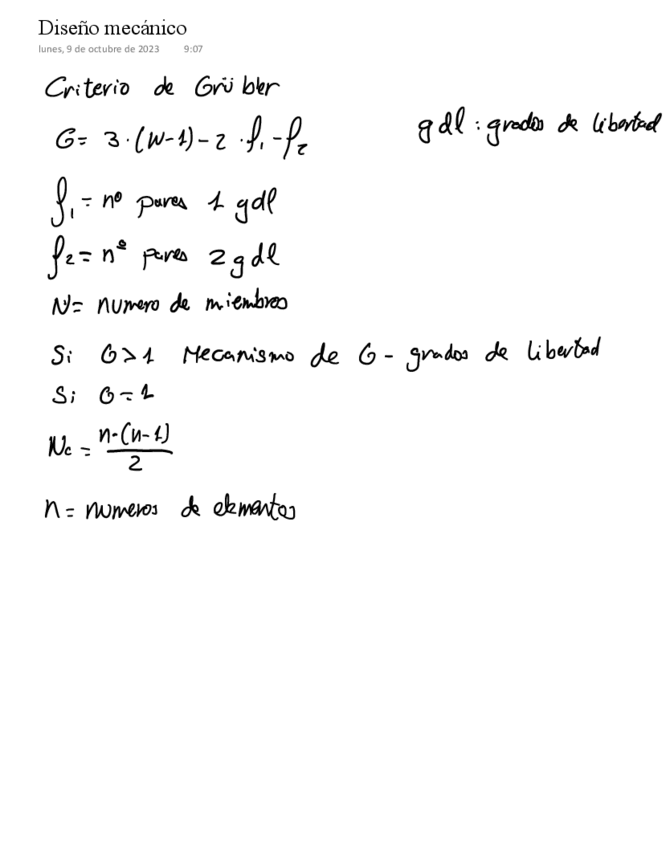 Diseño mecánico
lunes, 9 de octubre de 2023 9:07
Criterio de Grübler
G= 3·(N-1)-2·f₁-f₂ gdl: grados de libertad
f₁= nº pares 1 gdl
f₂= nº pares 2 gdl
N= numero de miembros
Si G>1 Mecanismo de G- grados de libertad
Si G=1
Nc = n·(n-1)/2
n= numeros de elementos